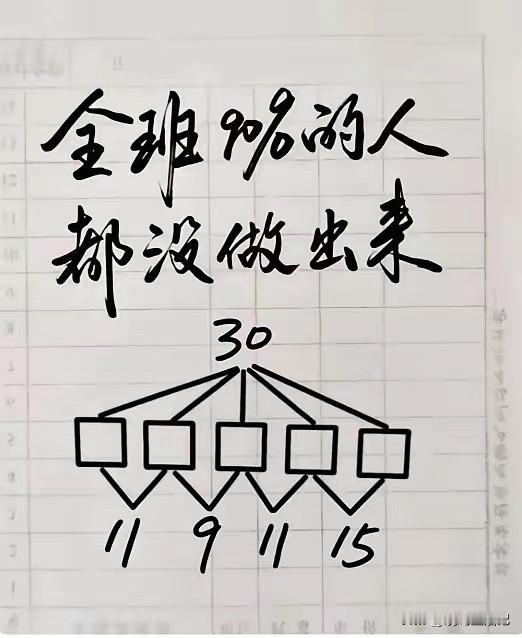 全班90%的人
都没做出来
30
11 9 11 15